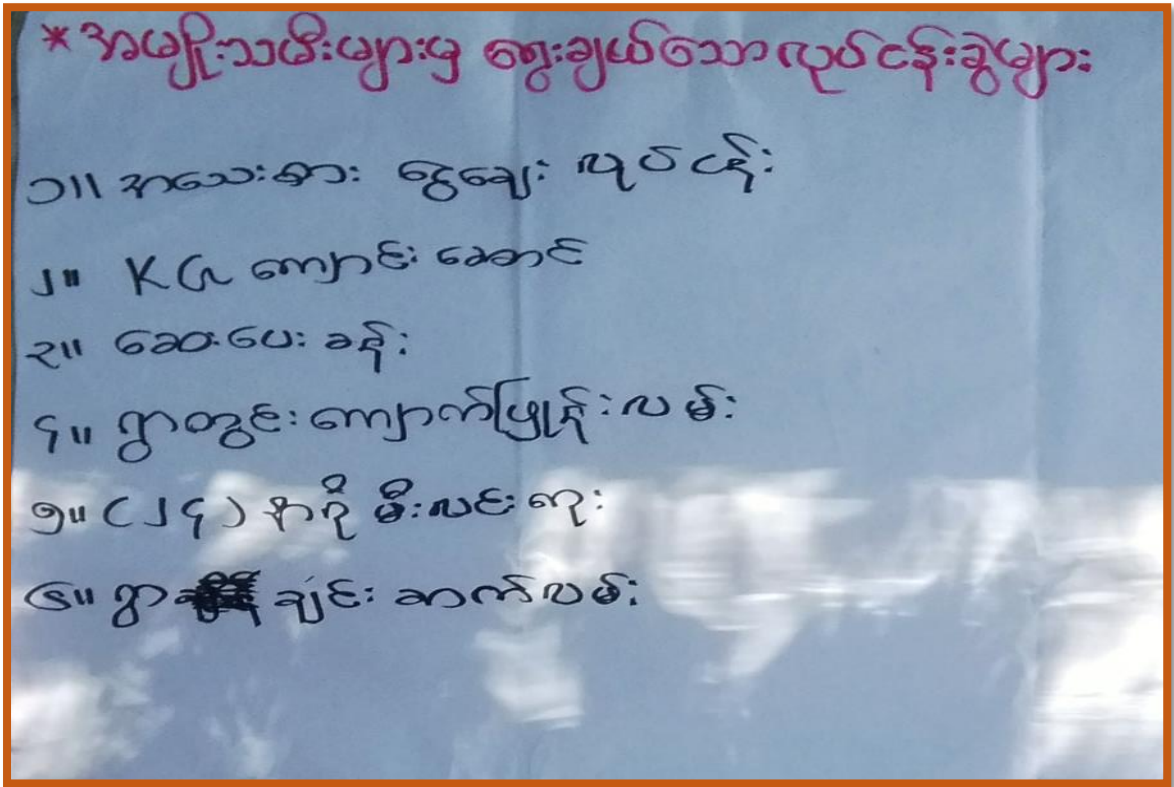 * အမျိုးသမီးများမှ ရွေးချယ်သော လုပ်ငန်းခွဲများ
၁။ အသေးစား ငွေချေး လုပ်ငန်း
၂။ KG ကျောင်း ဆောင်
၃။ ဆေးပေး ခန်း
၄။ ရွာတွင်း ကျောက်ဖြုန်းလမ်း
၅။ (၂၄) နာရီ မီးလင်းရေး
၆။ ရွာ ချင်း ဆက်လမ်း